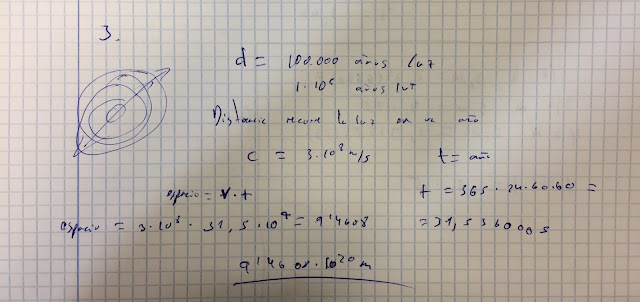 3.
d = 100.000 años luz
1·10⁶ años luz
Distancia recorre la luz en un año
c = 3·10⁸ m/s t = año
espacio = v·t t = 365·24·60·60 =
espacio = 3·10⁸ · 31,5·10⁷ = 9'4608 = 31,536000 s
9'4608·10²⁰ m